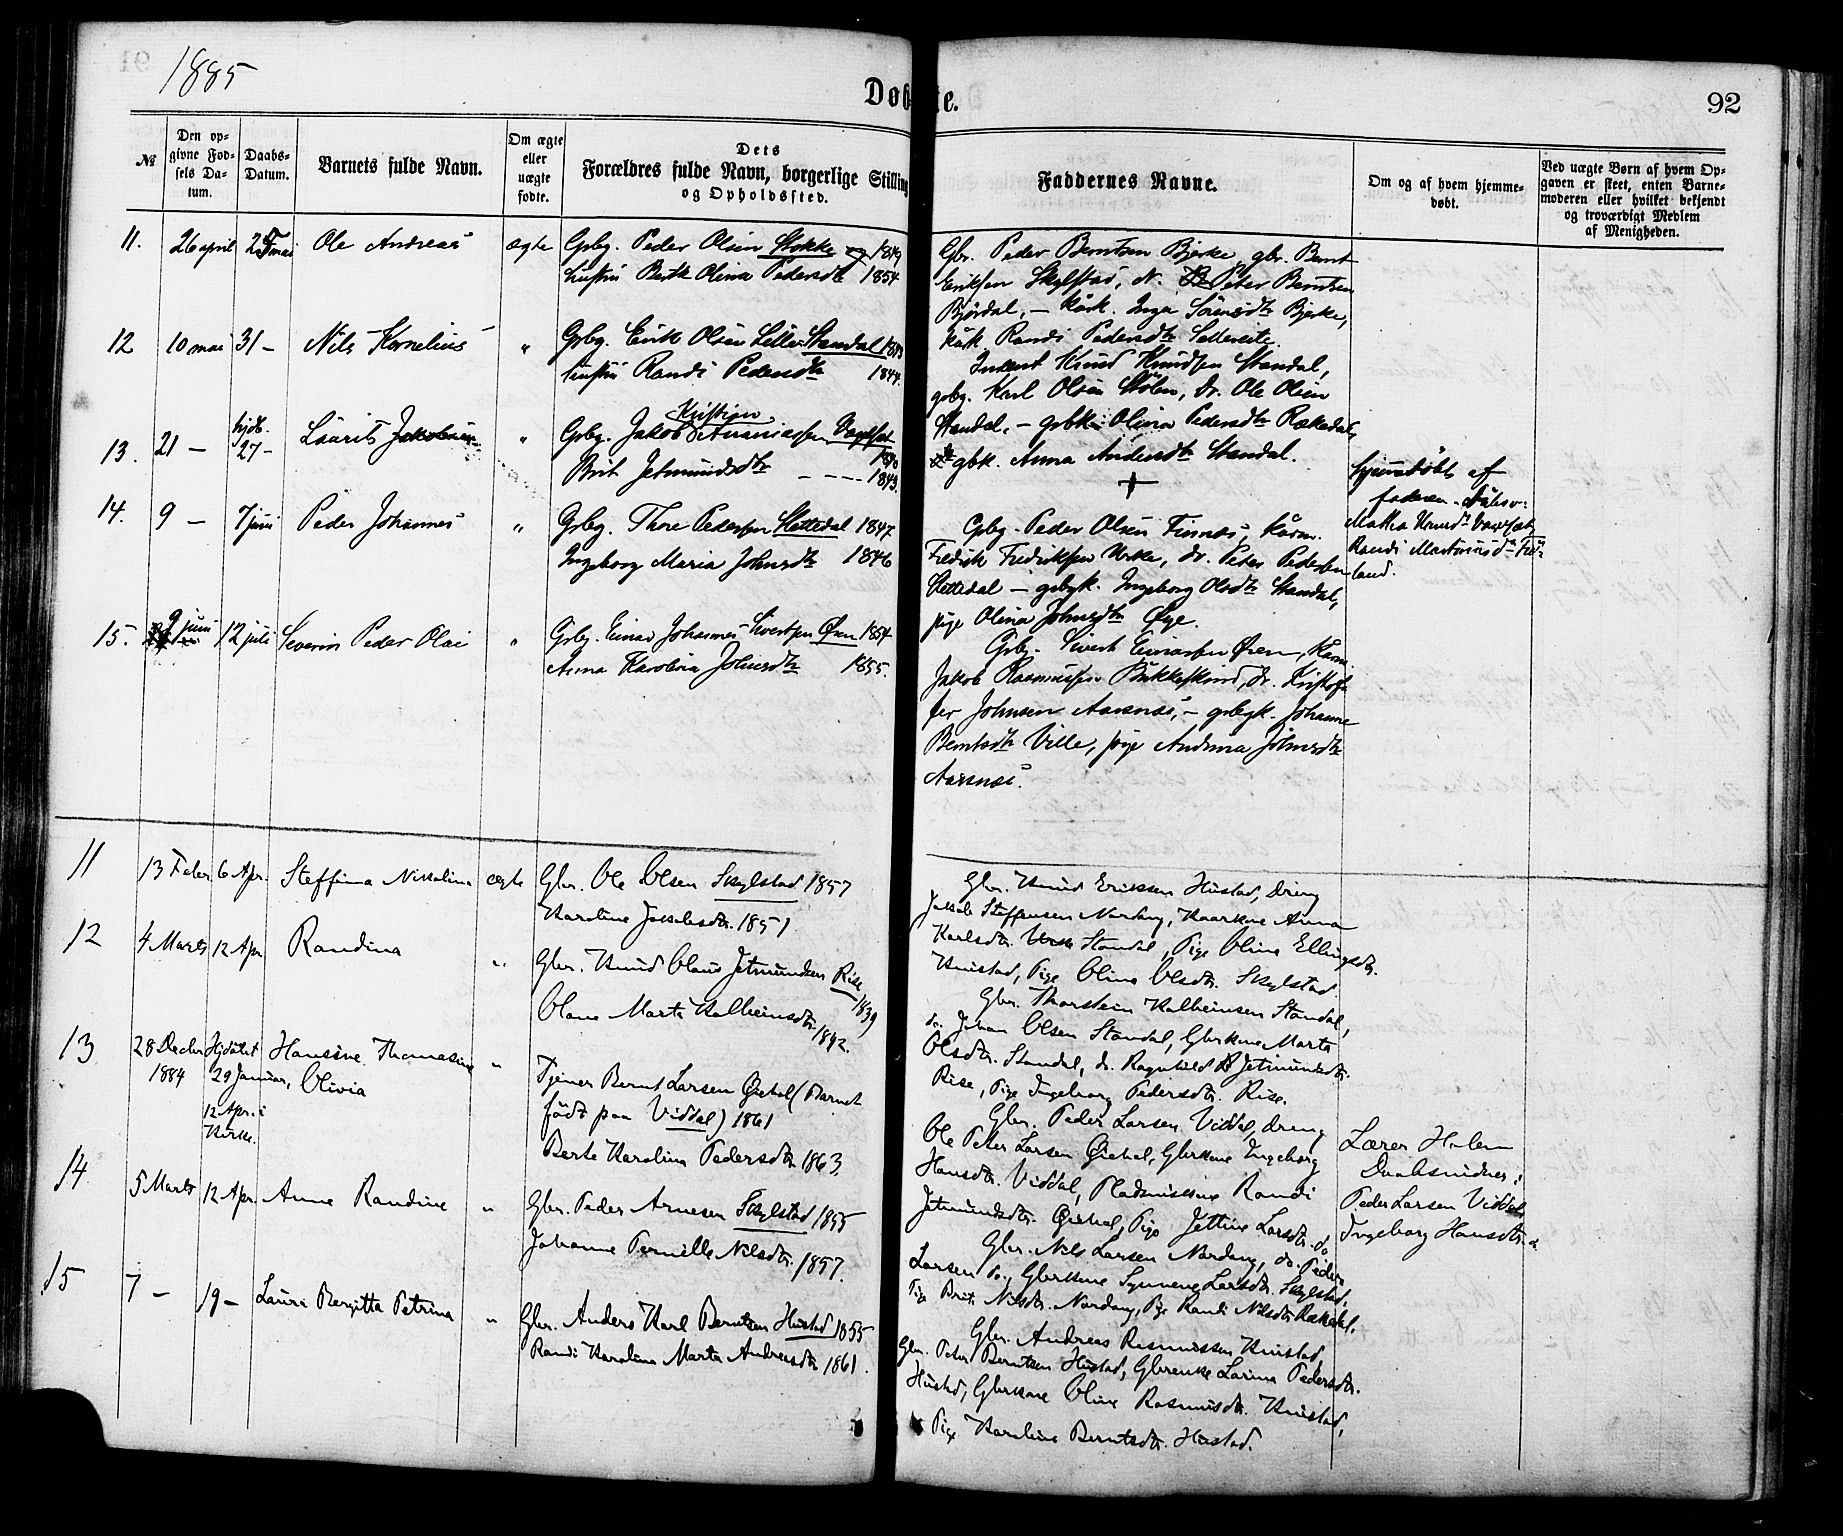 1885
Døbte.
92
№
Den opgivne Fødsels Datum.
Daabs-Datum.
Barnets fulde Navn.
Om ægte eller uægte fødte.
Dets Forældres fulde Navn, borgerlige Stilling og Opholdssted.
Faddernes Navne.
Om og af hvem hjemmedøbt.
Ved uægte Børn af hvem Opgaven er skeet, enten Barnemoderen eller hvilket bekjendt og troværdigt Medlem af Menigheden.
11. 26 april mai Ole Andreas ægte Gbg. Peder Olsen Stokke 1849
hustru Berte Olina Pedersdtr 1854
Gbr. Peder Berntsen Bjerke, gbr. Bernt
Eriksen Skylstad, N. Peter Berntsen
Bjørdal, – kårk. Inger Sörensdtr Bjerke,
kårk Randi Pedersdtr Sætereite.
12 10 mai 31 – Nils Kornelius " Gbg. Erik Olsen Lille Standal
hustru Randi Pedersdtr 1844.
Inderst Knud Knudsen Standal,
gbg. Karl Olsen Stölen, dr. Ole Olsen
Standal, – gbk. Olina Pedersdtr Rækedal,
gbk. Anna Andersdtr Standal.
13. 21 – hjdb. 27 – Laurits Jakobus " Gbg. Jakob Kristian Ananiassen
Brit Jetmundsdtr – – – – 1843.
+
Hjemmedöbt af
faderen.
Randi Martinusdtr
land.
14. 9 – 7 juni Peder Johannes " Gbg. Thore Pedersen Slettedal 1847
Ingeborg Maria Johnsdtr 1846
Gbg. Peder Olsen Finnes, kårm.
Fredrik Fredriksen Urke, dr. Peter Pedersen
Slettedal – gbgk. Ingeborg Olsdtr Standal,
pige Olina Johnsdtr Øye.
15. 9 juni 12 juli Severin Peder Olai " Gbg. Einar Johannes Sivertsen Øren 1854
Anna Karolina Johnsdtr 1855.
Gbg. Sivert Einarsen Øren, kårm.
Jakob Rasmussen Bukkeskind, dr. Kristof-
fer Johnsen Aarsnes, – gbgk. Johanne
Berntsdtr Ville, pige Andrina Johnsdtr
Aarsnes.
11 13 Febr. 6 Apr. Steffina Nikolina ægte Gbr. Ole Olsen Skylstad 1857
Karoline Jakobsdtr. 1851
Gbr. Knud Eriksen Hustad, Dreng
Jakob Steffensen Nordang, Kaarkone Anna
Karlsdtr. Standal, Pige Oline Ellingsdtr.
Hustad, Pige Oline Olsdtr. Skylstad
12 4 Marts 12 Apr. Randina " Gbr. Knud Olaus Jetmundsen Rise 1839
Olane Marta Kolbeinsdtr. 1842.
Gbr. Thorstein Kolbeinsen Standal,
do. Johan Olsen Standal, Gbrkone Marta
Olsdtr. Standal, do. Ragnhild Jetmundsdtr.
Rise, Pige Ingeborg Pedersdtr. Rise.
13 28 Decbr 1884 Hjdöbt 29 Januar, 12 Apr. i Kirke. Hansine Thomasine Olivia " Tjener Bernt Larsen Øiehal (Barnet
födt paa Viddal) 1861
Berte Karolina Pedersdtr. 1863
Gbr. Peder Larsen Viddal, dreng
Ole Peter Larsen Øiehal, Gbrkone Ingeborg
Hansdtr. Viddal, Pladsmiskone Randi
Jetmundsdtr. Øiehal, Pige Jettine Larsdtr. do
Lærer Holen
Daabsvidner:
Peder Larsen Viddal
Ingeborg Hansdtr. do
14. 5 Marts 12 Apr. Anne Randine " Gbr. Peder Arnesen Skylstad 1855
Johanne Pernille Nilsdtr. 1857.
Gbr. Nils Larsen Nordang, do. Peder
Larsen do., Gbrkone Synneve Larsdtr. Skylstad,
Pige Brit Nilsdtr. Nordang, Pige Randi Nilsdtr. Rækedal.
15 7 – 19 – Laura Bergitta Petrina " Gbr. Anders Karl Berntsen Hustad 1855
Randi Karoline Marta Andreasdtr. 1861.
Gbr. Andreas Rasmussen Hustad
Gbr. Peter Berntsen Hustad, Gbrenke Larina Pedersdtr.
Hustad, Gbrkone Oline Rasmusdtr. Hustad,
Pige Karoline Berntsdtr. Hustad.